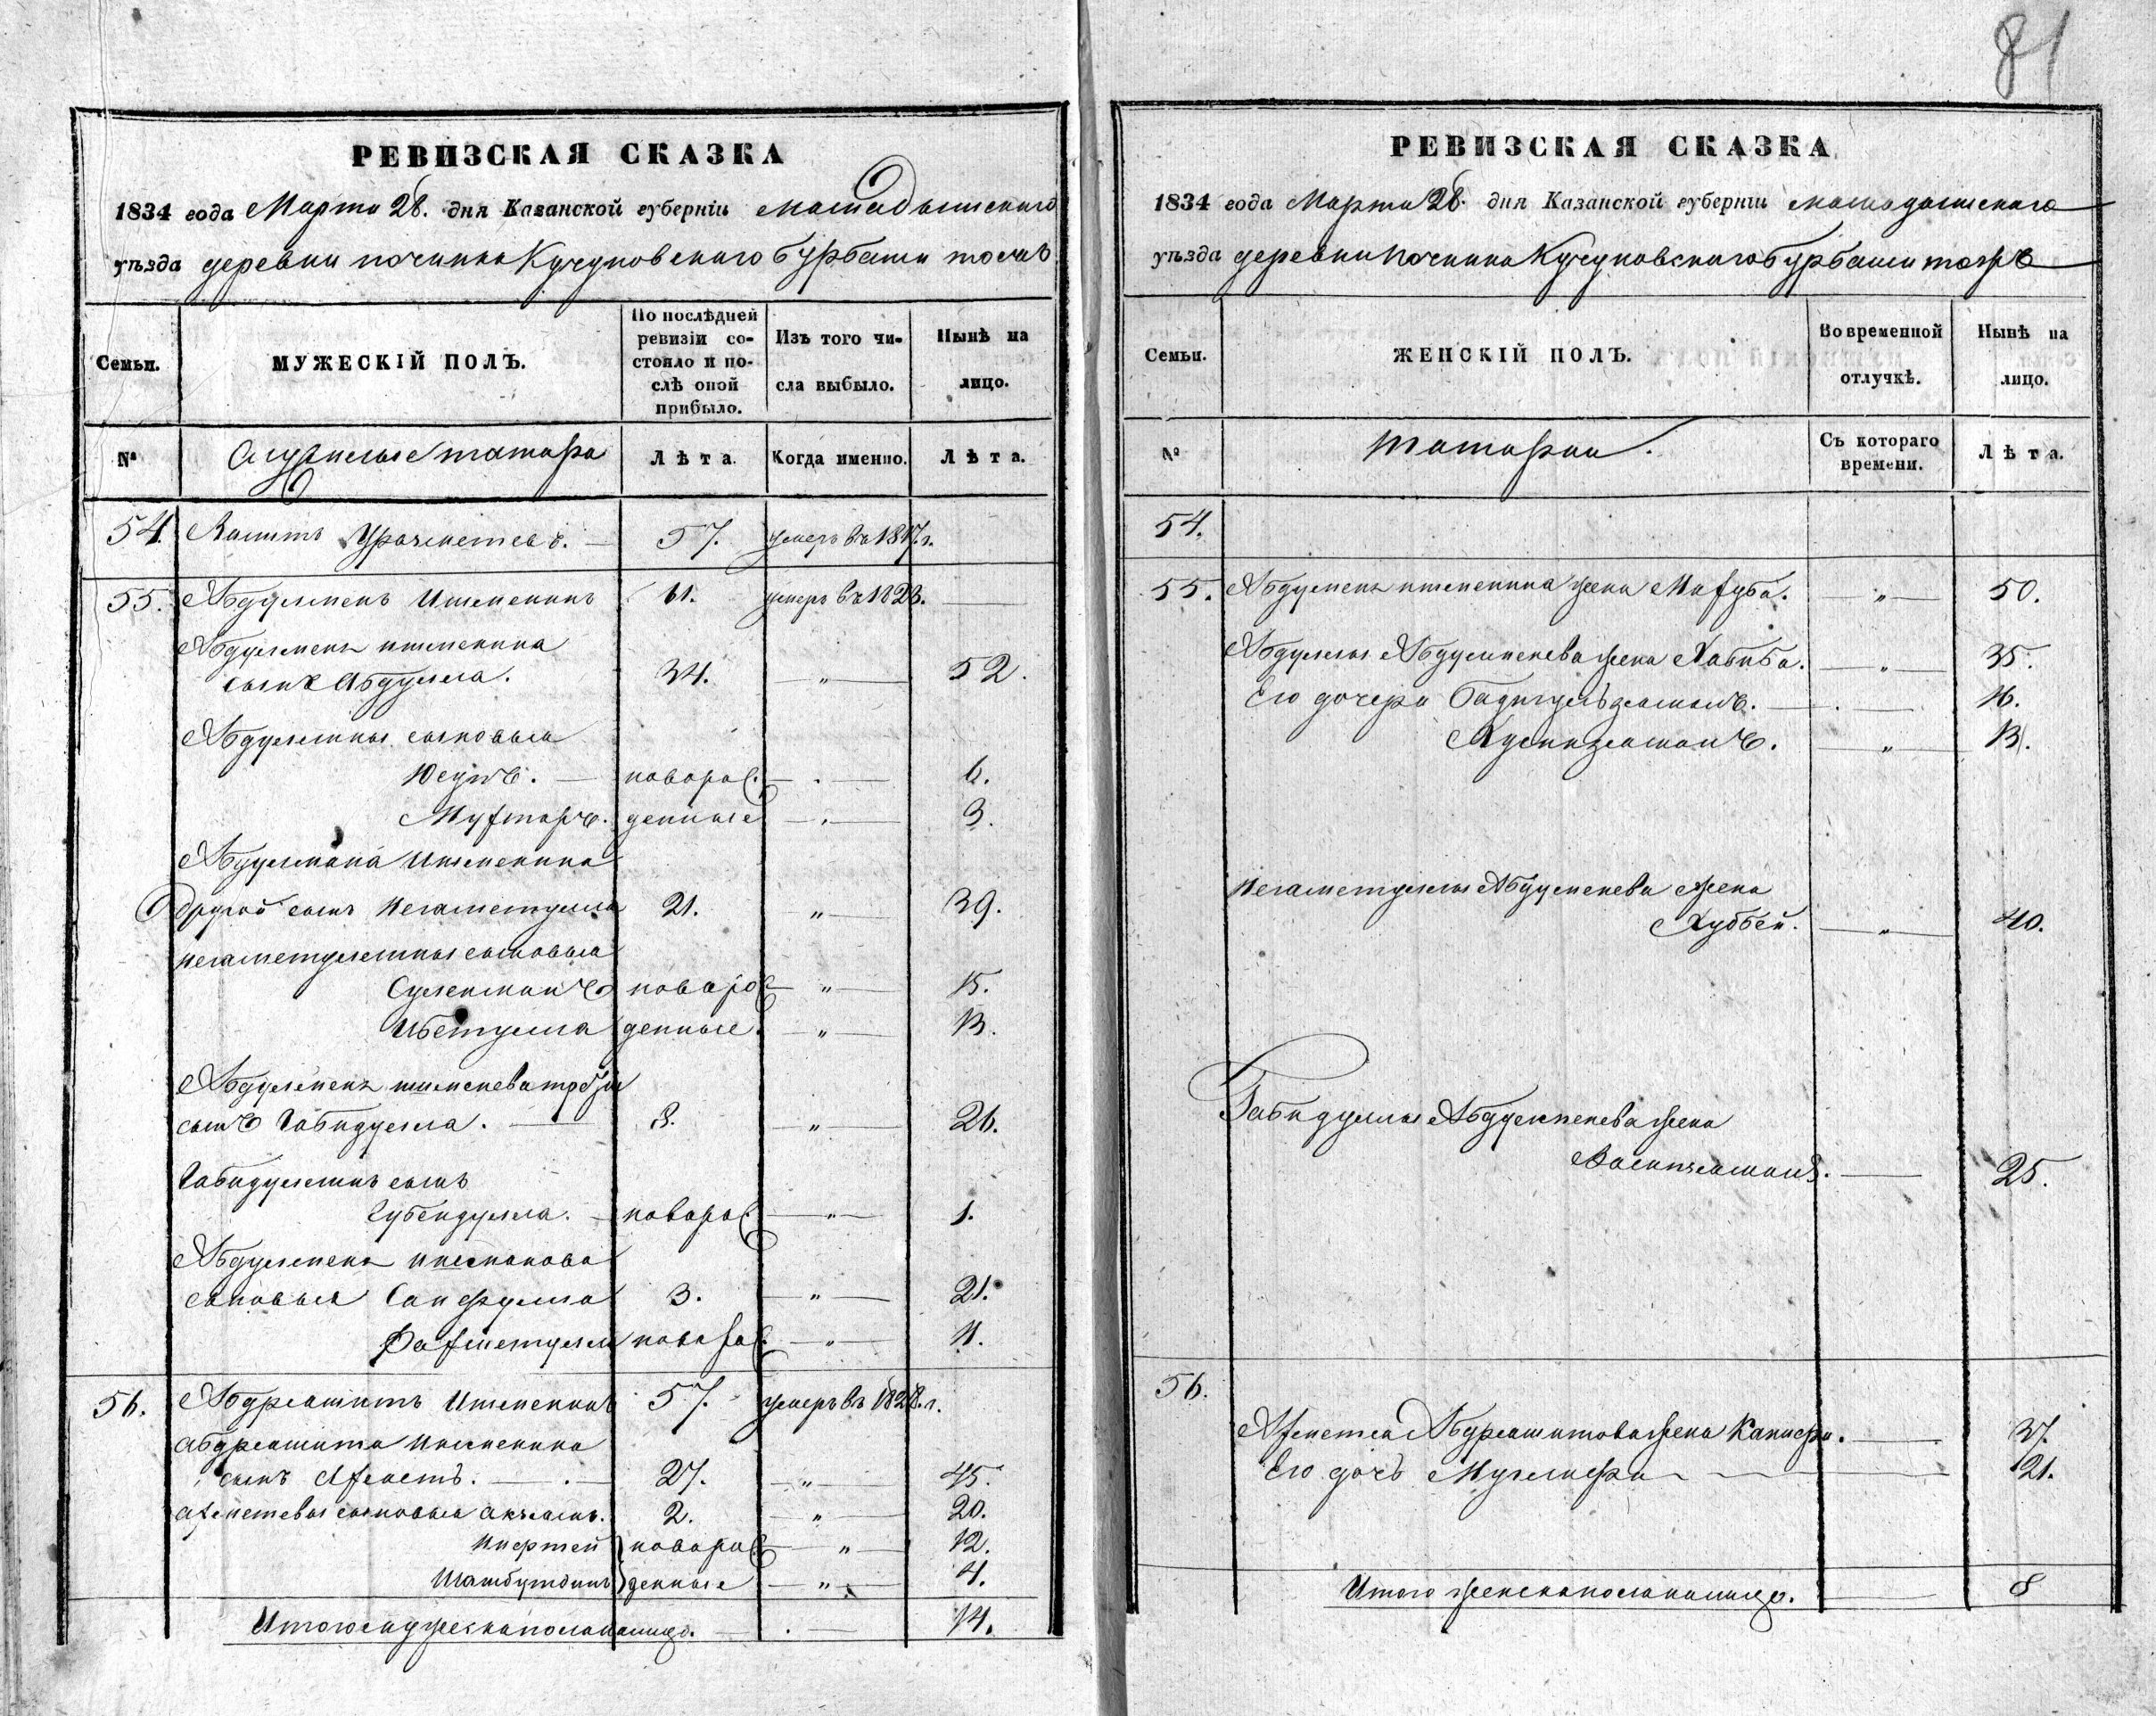 81
РЕВИЗСКАЯ СКАЗКА
1834 года Марта 28. дня Казанской губерніи мамадышскаго
уѣзда деревни починка Кучуковскаго бурбаши тожъ
Семьи.
МУЖЕСКІЙ ПОЛЪ.
По послѣдней ревизіи состояло и послѣ оной прибыло.
Изъ того числа выбыло.
Нынѣ на лицо.
№
Служилые татара
Лѣта.
Когда именно.
Лѣта.
54. Уразметевъ. 57. умеръ въ 1817. г.
55. Абдулменъ Ишменинъ 61. умеръ въ 1828.
Абдулмена ишменина
сынъ Абдулла. 34. " 52.
Абдуллины сыновья
Юсупъ. новорож 6.
Мухтаръ. денные 3.
Абдулмена Ишменина
другой сынъ Негаметулла 21. " 39.
Негаметуллины сыновья
Сулейманъ новорож " 15.
Ибетулла денные. " 13.
Абдулмена ишменева третій
сынъ Габидулла. 8. " 26.
Габидуллинъ сынъ
Губейдулла. новорож. " 1.
Абдулмена
сыновья Сайфулла 3. " 21.
Рахметулла новорож. " 11.
56. Абдрашитъ Ишменинъ 57. умеръ въ 1828. г.
абдрашита Ишменина
сынъ Ахметъ. 27. " 45.
ахметевы сыновья 2. " 20.
новорож " 12.
денные " 4.
Итого мужеска пола на лицо. 14.
РЕВИЗСКАЯ СКАЗКА
1834 года Марта 28. дня Казанской губерніи мамадышскаго
уѣзда деревни починка Кучуковскаго бурбаши тожъ
Семьи.
ЖЕНСКІЙ ПОЛЪ.
Во временной отлучкѣ.
Нынѣ на лицо.
№
татарки.
Съ котораго времени.
Лѣта.
54.
55. Абдулмена ишменина жена Махуба. " 50.
Абдуллы Абдулменева жена Хабиба. " 35.
Его дочери Бадигульзямалъ. 16.
Хуснизямалъ. " 13.
Негаметуллы Абдулменева жена
" 40.
Габидуллы Абдулменева жена
25.
56.
Ахметя Абдрашитова жена 37.
Его дочь 21.
Итого женска пола на лицо. 8